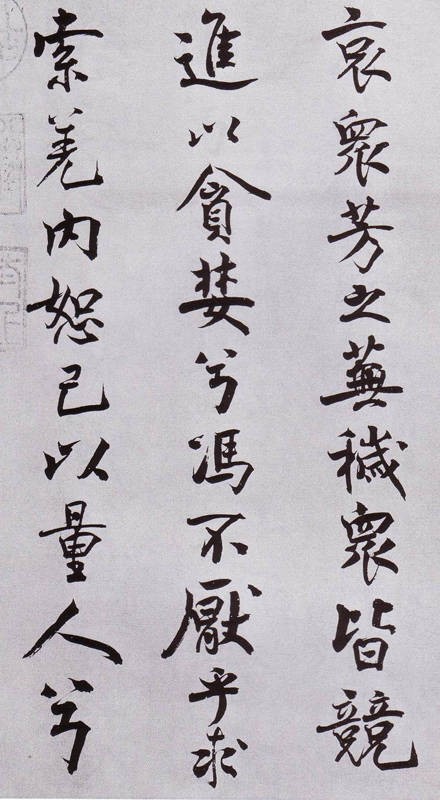 哀衆芳之蕪穢衆皆競
進以貪婪兮馮不厭乎求
索羌内恕己以量人兮